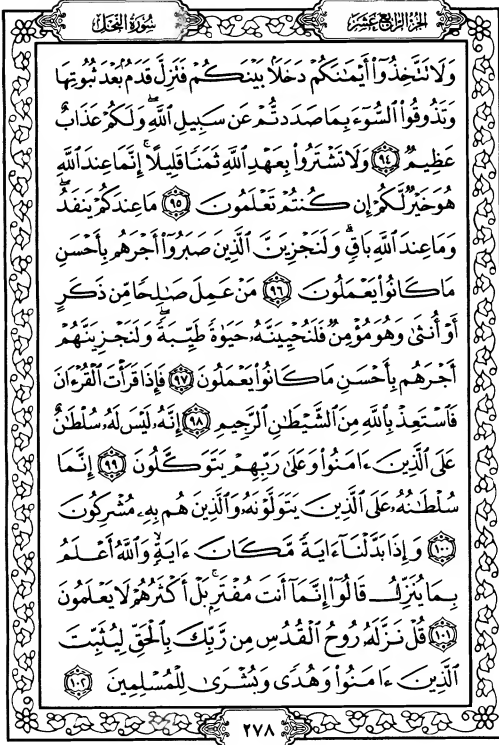 الجزء الرابع عشر
سورة النحل
وَلَا تَتَّخِذُوٓا۟ أَيْمَٰنَكُمْ دَخَلًۢا بَيْنَكُمْ فَتَزِلَّ قَدَمٌۢ بَعْدَ ثُبُوتِهَا
وَتَذُوقُوا۟ ٱلسُّوٓءَ بِمَا صَدَدتُّمْ عَن سَبِيلِ ٱللَّهِ ۖ وَلَكُمْ عَذَابٌ
عَظِيمٌ ٩٤ وَلَا تَشْتَرُوا۟ بِعَهْدِ ٱللَّهِ ثَمَنًا قَلِيلًا ۚ إِنَّمَا عِندَ ٱللَّهِ
هُوَ خَيْرٌ لَّكُمْ إِن كُنتُمْ تَعْلَمُونَ ٩٥ مَا عِندَكُمْ يَنفَدُ ۖ
وَمَا عِندَ ٱللَّهِ بَاقٍ ۗ وَلَنَجْزِيَنَّ ٱلَّذِينَ صَبَرُوٓا۟ أَجْرَهُم بِأَحْسَنِ
مَا كَانُوا۟ يَعْمَلُونَ ٩٦ مَنْ عَمِلَ صَٰلِحًا مِّن ذَكَرٍ
أَوْ أُنثَىٰ وَهُوَ مُؤْمِنٌ فَلَنُحْيِيَنَّهُۥ حَيَوٰةً طَيِّبَةً ۖ وَلَنَجْزِيَنَّهُمْ
أَجْرَهُم بِأَحْسَنِ مَا كَانُوا۟ يَعْمَلُونَ ٩٧ فَإِذَا قَرَأْتَ ٱلْقُرْءَانَ
فَٱسْتَعِذْ بِٱللَّهِ مِنَ ٱلشَّيْطَٰنِ ٱلرَّجِيمِ ٩٨ إِنَّهُۥ لَيْسَ لَهُۥ سُلْطَٰنٌ
عَلَى ٱلَّذِينَ ءَامَنُوا۟ وَعَلَىٰ رَبِّهِمْ يَتَوَكَّلُونَ ٩٩ إِنَّمَا
سُلْطَٰنُهُۥ عَلَى ٱلَّذِينَ يَتَوَلَّوْنَهُۥ وَٱلَّذِينَ هُم بِهِۦ مُشْرِكُونَ
١٠٠ وَإِذَا بَدَّلْنَآ ءَايَةً مَّكَانَ ءَايَةٍ ۙ وَٱللَّهُ أَعْلَمُ
بِمَا يُنَزِّلُ قَالُوٓا۟ إِنَّمَآ أَنتَ مُفْتَرٍۭ ۚ بَلْ أَكْثَرُهُمْ لَا يَعْلَمُونَ
١٠١ قُلْ نَزَّلَهُۥ رُوحُ ٱلْقُدُسِ مِن رَّبِّكَ بِٱلْحَقِّ لِيُثَبِّتَ
ٱلَّذِينَ ءَامَنُوا۟ وَهُدًى وَبُشْرَىٰ لِلْمُسْلِمِينَ ١٠٢
٢٧٨